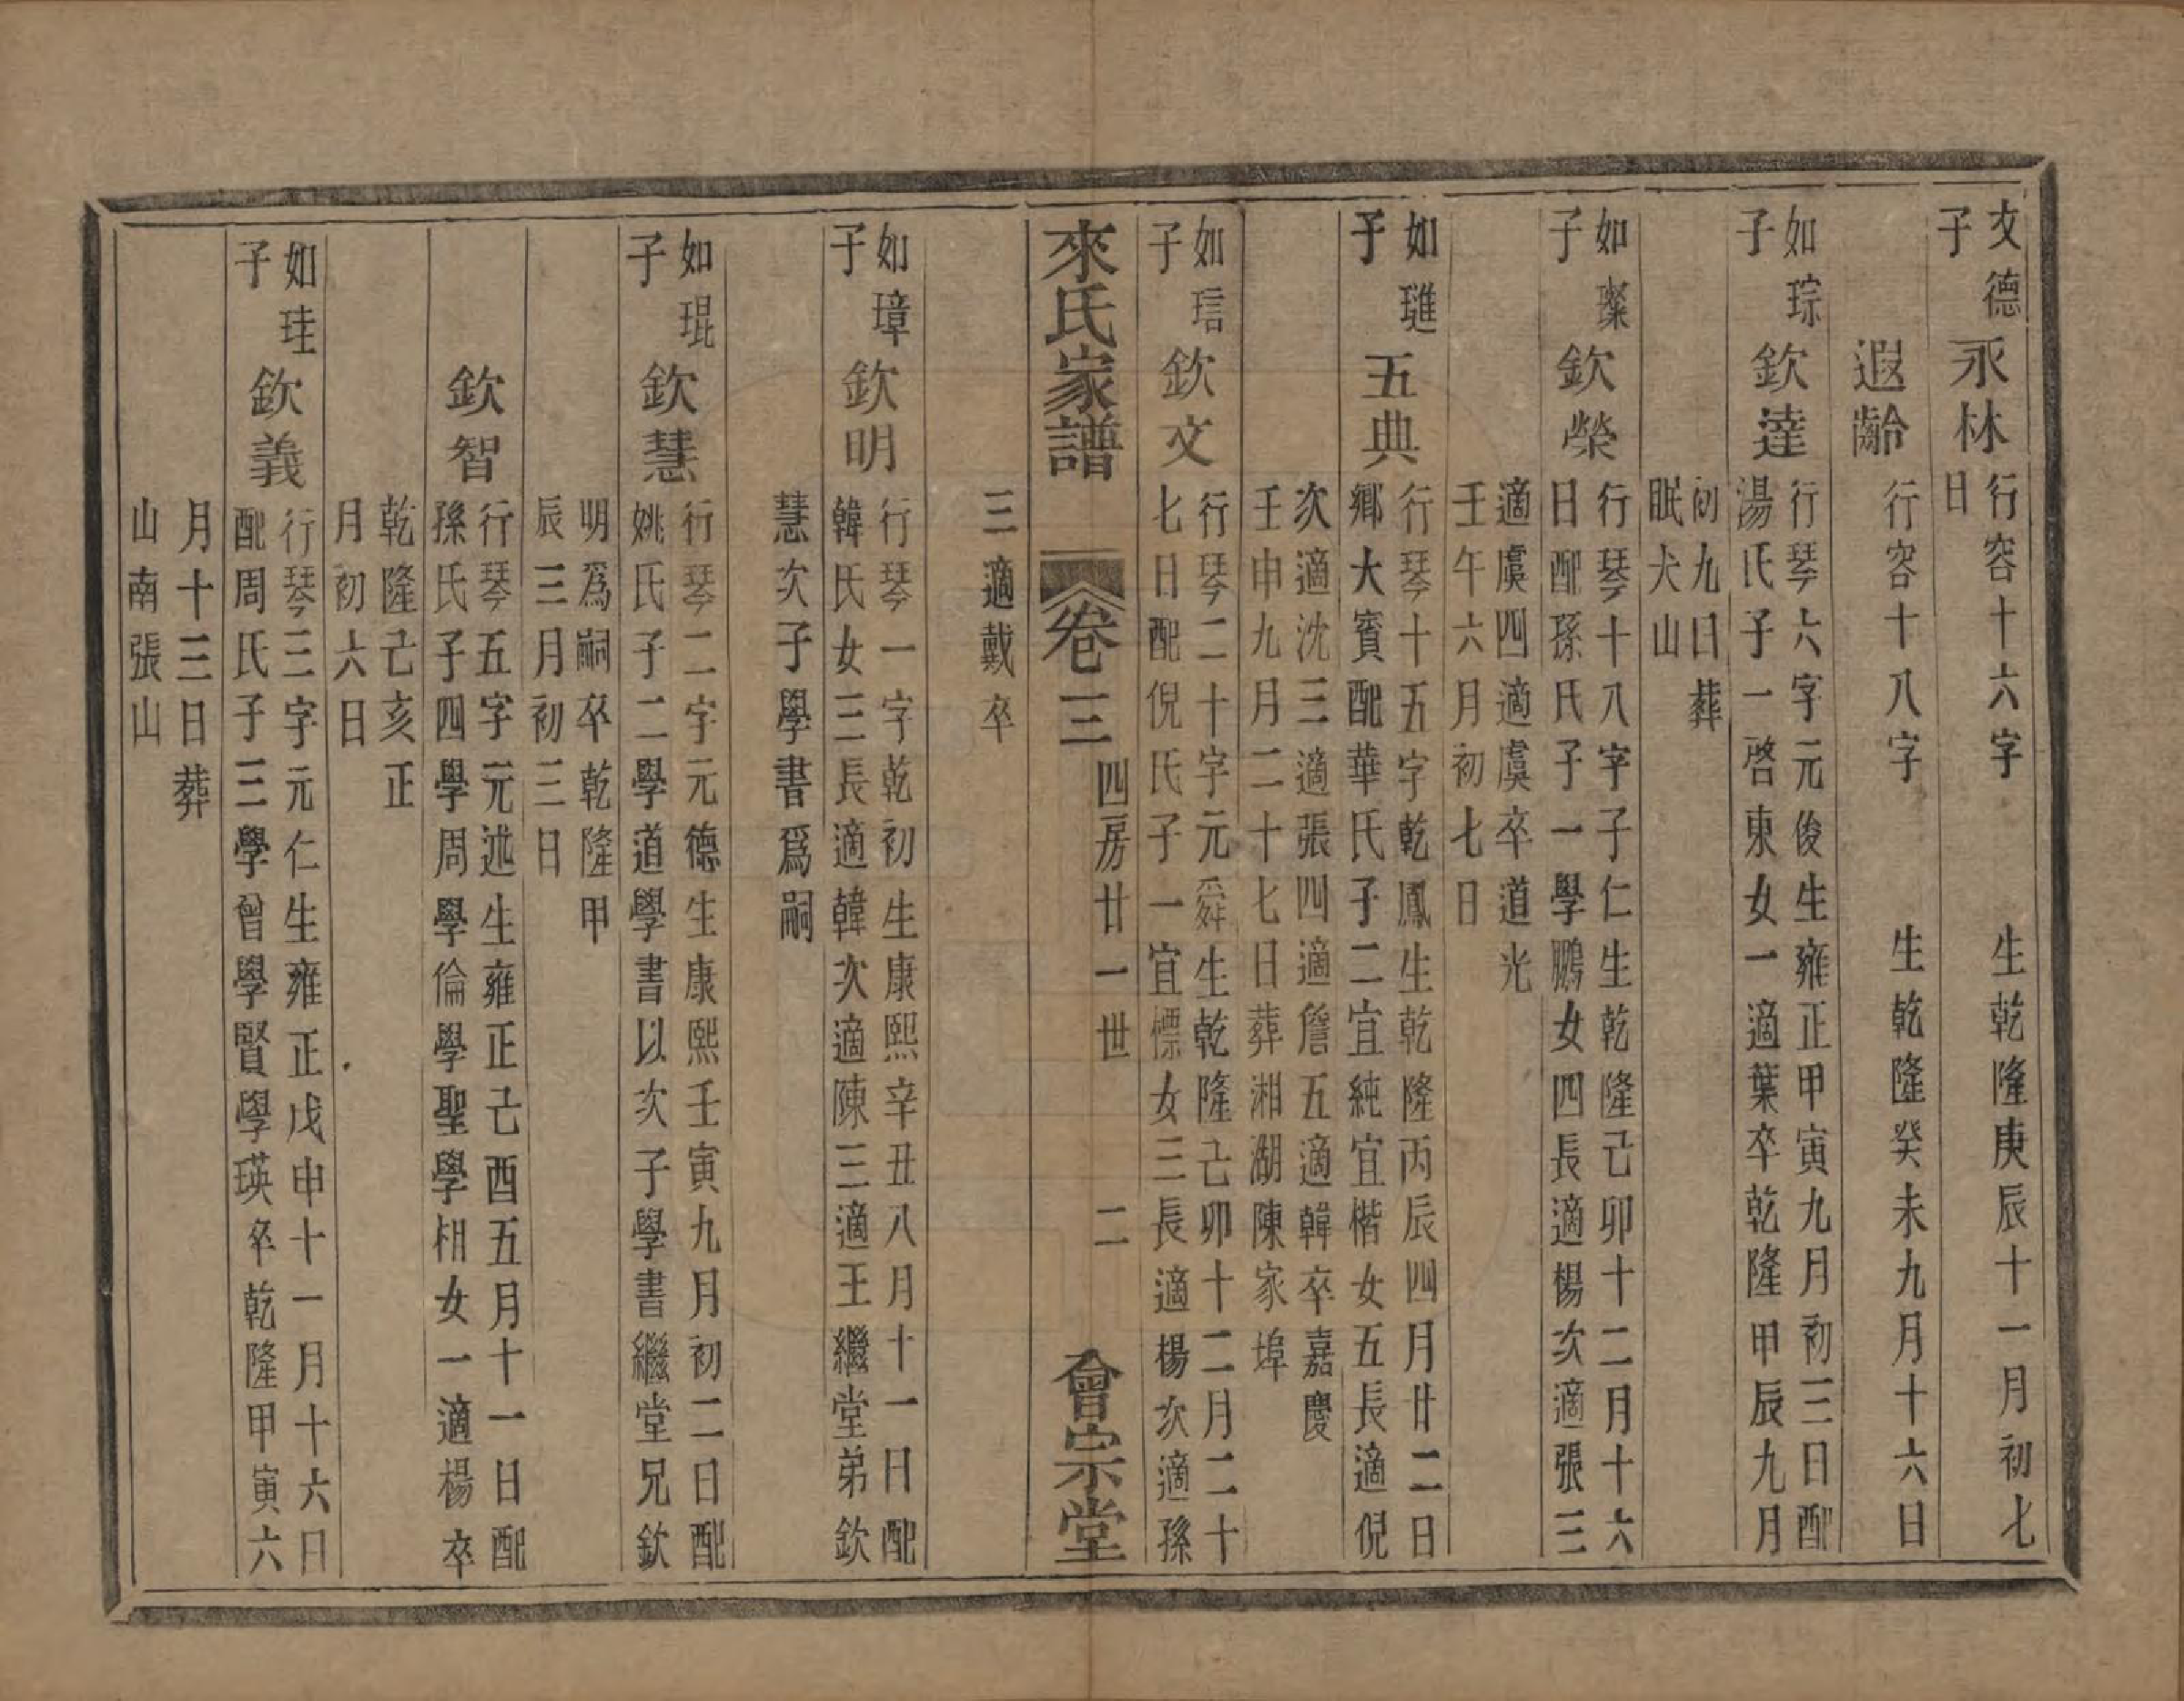 文德
子
永林
行容十六字　生乾隆庚辰十一月初七
日
遐齡
行容十八字　生乾隆癸未九月十六日
如琮
子
欽達
行琴六字元俊生雍正甲寅九月初三日配
湯氏子一啓東女一適葉卒乾隆甲辰九月
初九日葬
眠犬山
如璨
子
欽榮
行琴十八字子仁生乾隆己卯十二月十六
日配孫氏子一學鵬女四長適楊次適張三
適虞四適虞卒道光
壬午六月初七日
如璡
子
五典
行琴十五字乾鳳生乾隆丙辰四月廿二日
鄉大賓配華氏子二宜純宜楷女五長適倪
次適沈三適張四適詹五適韓卒嘉慶
壬申九月二十七日葬湘湖陳家埠
如琂
子
欽文
行琴二十字元舜生乾隆己卯十二月二十
七日配倪氏子一宜慓女三長適楊次適孫
來氏家譜
卷三
四房廿一世
二
會宗堂
三適戴卒
如璋
子
欽明
行琴一字乾初生康熙辛丑八月十一日配
韓氏女三長適韓次適陳三適王繼堂弟欽
慧次子學書爲嗣
如琨
子
欽慧
行琴二字元德生康熙壬寅九月初二日配
姚氏子二學道學書以次子學書繼堂兄欽
明爲嗣卒乾隆甲
辰三月初三日
欽智
行琴五字元述生雍正己酉五月十一日配
孫氏子四學周學倫學聖學相女一適楊卒
乾隆己亥正
月初六日
如珪
子
欽義
行琴三字元仁生雍正戊申十一月十六日
配周氏子三學曾學賢學瑛卒乾隆甲寅六
月十三日葬
山南張山